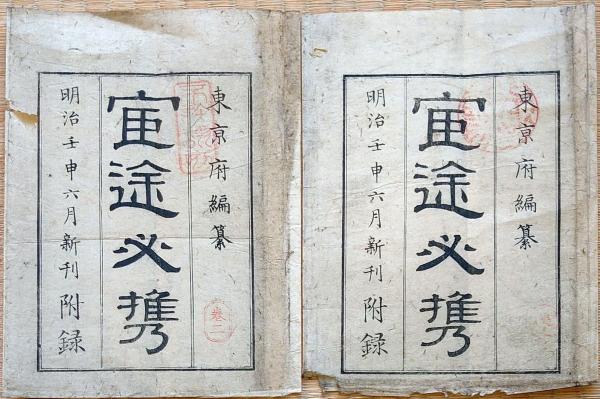 東亰府編纂
宦途必携
明治壬申六月新刊附録
卷二
東亰府編纂
宦途必携
明治壬申六月新刊附録